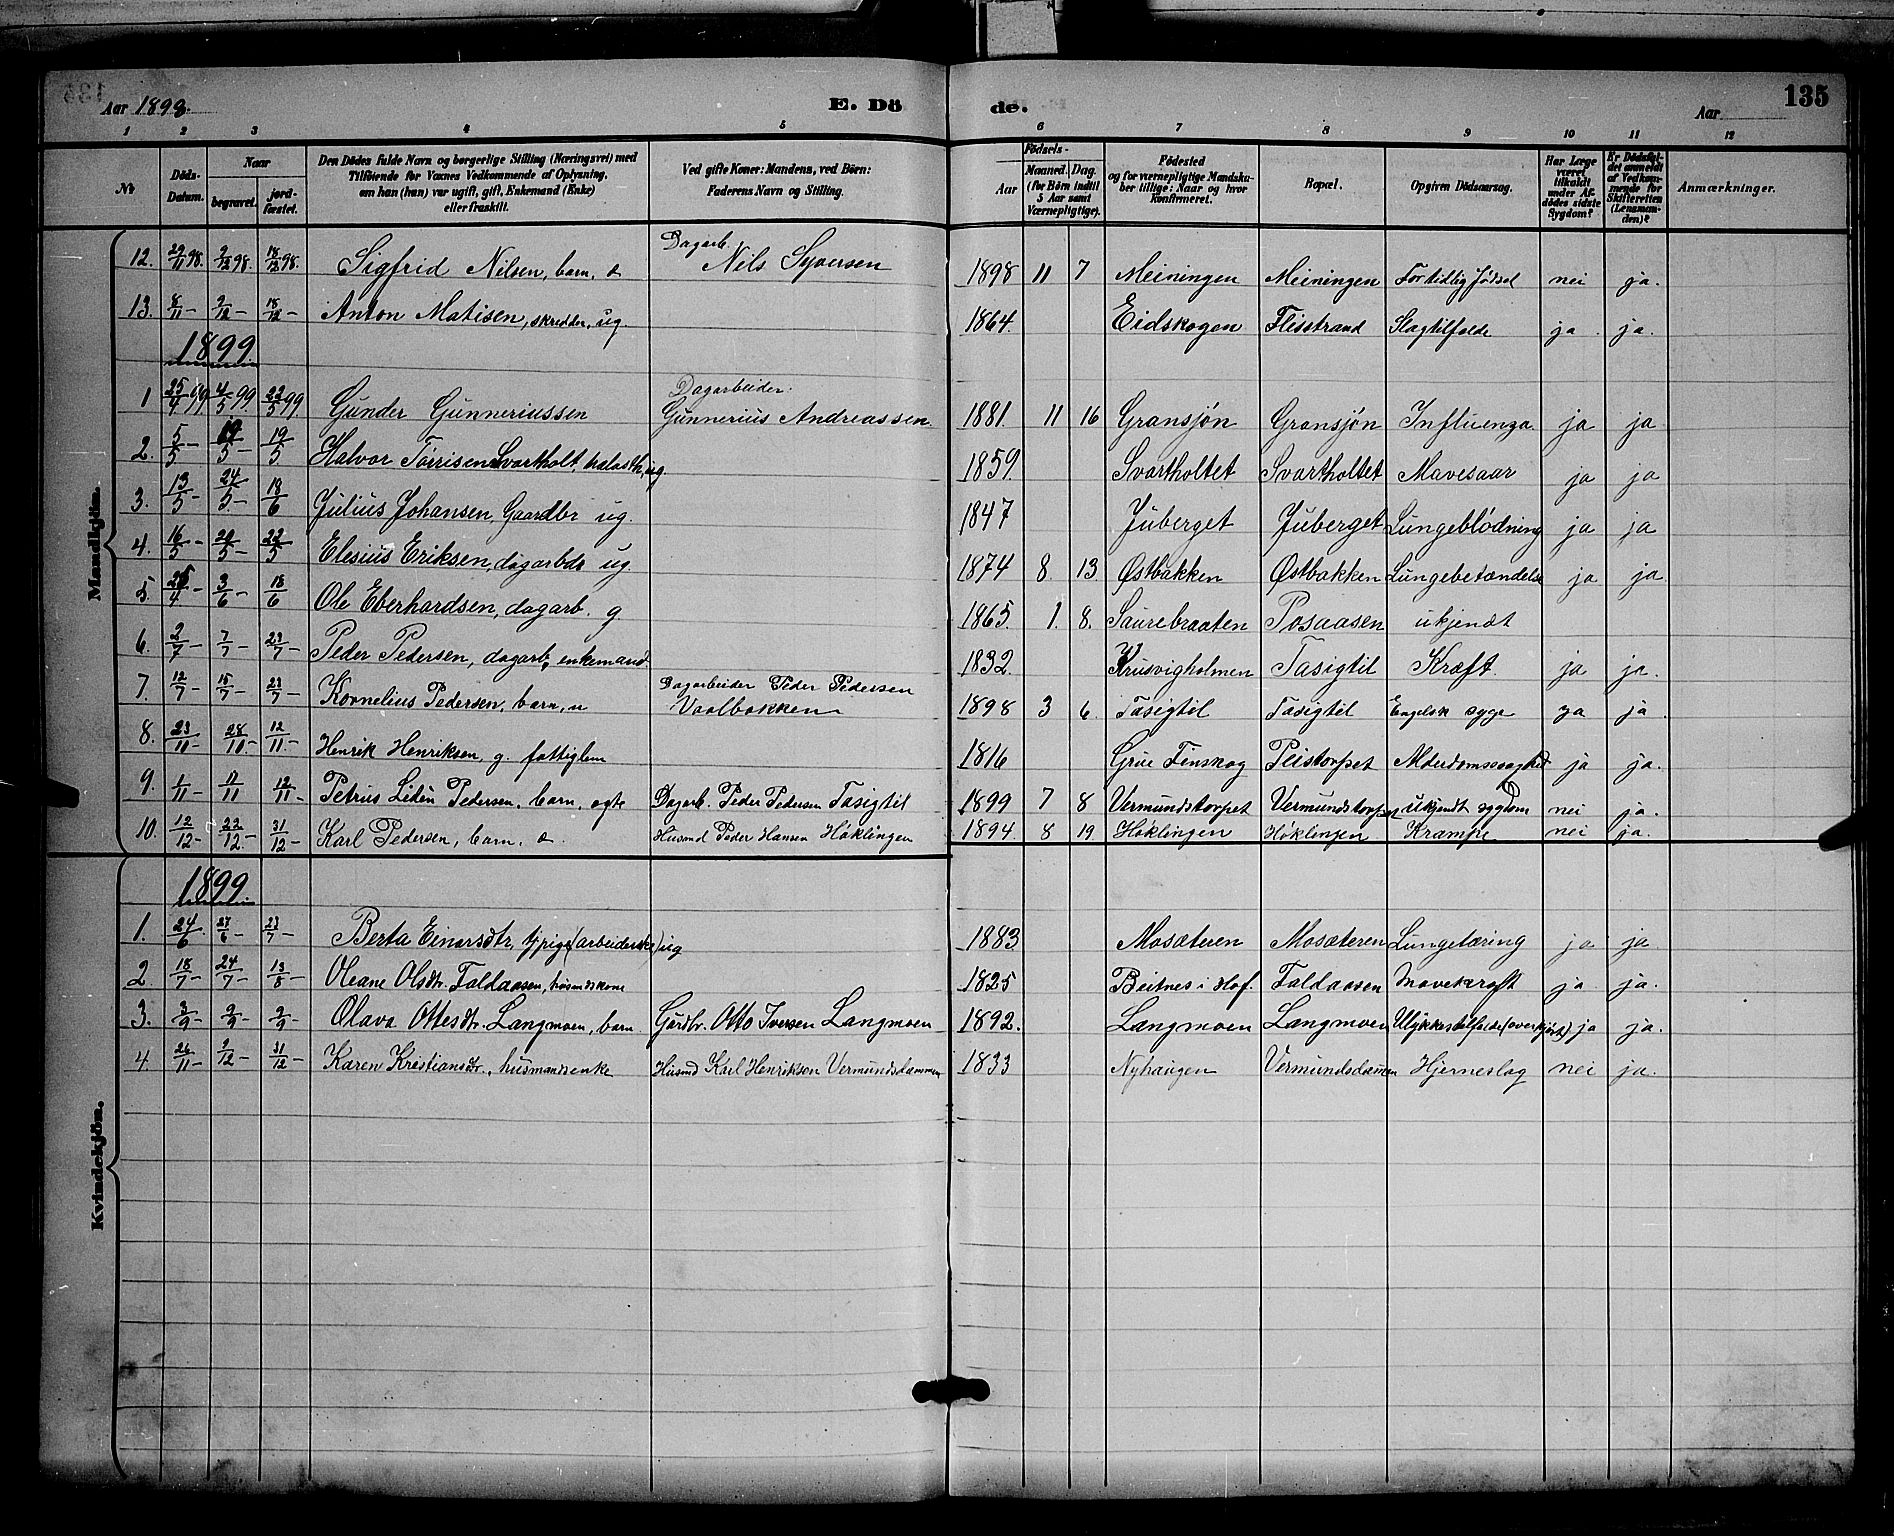 Aar 1898.
E. Dö de.
Aar
135
1 2 3 4 5 6 7 8 9 10 11 12
No
Döds-Datum.
Naar
begravet.
jord-fæstet.
Den Dödes fulde Navn og borgerlige Stilling (Næringsvei) med Tilföiende for Voxnes Vedkommende af Oplysning, om han (hun) var ugift, gift, Enkemand (Enke) eller fraskilt.
Ved gifte Koner: Mandens, ved Börn: Faderens Navn og Stilling.
Födsels-
Aar
Maaned. Dag.
(for Börn indtil 5 Aar samt Værnepligtige).
Födested og for værnepligtige Mandskaber tillige: Naar og hvor konfirmeret.
Bopæl.
Opgiven Dödsaarsag.
Har Læge været tilkaldt under Afdödes sidste Sygdom?
Er Dödsfaldet anmeldt af Vedkommende for Skifteretten (Lensmanden)?
Anmærkninger.
Mandkjön.
12. 29/11 98. 9/12 98. 18/12 98. Sigfrid Nilsen, barn, Dagarb. Nils Syversen 1898 11 7 Meiningen Meiningen For tidlig fødsel nei ja.
13. 8/11 – 9/12 – 18/12 – Anton Matisen, skredder, ug. 1864. Eidskogen Flisstrand Slagtilfælde ja ja.
1899
1 25/4 99 4/5 99. 22/5 99 Gunder Gunneriussen Dagarbeider: Gunnerius Andreassen. 1881. 11 16 Gransjøn Gransjøn Influenza ja ja
2. 5/5 – 19/5 – 19/5 Halvor Torrisen Svartholt, ug 1859. Svartholtet Svartholtet Mavesaar ja ja
3. 13/5 – 24/5 – 18/6 Julius Johansen, Gaardbr ug. 1847 Juberget Juberget Lungeblödning ja ja
4. 16/5 – 20/5 – 22/5 Elesius Eriksen, dagarbdr ug 1874 8. 13 Østbakken Østbakken Lungebetændelse ja ja
5 25/4 – 3/6 – 18/6 Ole Eberhardsen, dagarb. g. 1865. 1. 8. Saurebraaten Posaasen ukjendt
6. 2/7 – 7/7 – 23/7 – Peder Pedersen, dagarb, enkemand. 1832. Krusvigholmen Tasigtil Kræft. ja ja.
7. 12/7 – 15/7 – 23/7 – Kornelius Pedersen, barn, u Dagarbeider Peder Pedersen Vaalbakken 1898 3 6. Tasigtil Tasigtil Engelsk syge ja ja.
8. 23/10 – 28/10 – 12/11. – Henrik Henriksen, g. fattiglem 1816 Grue Finskog Peistorpet Alderdomssvaghed ja ja.
9. 1/11 – 11/11 12/11 – Petrus Lidin Pedersen, barn, egte Dagarb. Peder Pedersen Tasigtil 1899 7 8 Vermundstorpet Vermundstorpet ukjendt sygdom nei ja.
10. 12/12 – 22/12 – 31/12 – Karl Pedersen, barn, Husmd Peder Hansen Høklingen 1894. 8 19 Høklingen Høklingen Krampe nei ja.
Kvindekjön.
1899
1. 24/6 27/6 – 23/7 – Berta Einarsdtr, (arbeiderske) ug 1883 Mosæteren Mosæteren Lungetæring ja ja
2 18/7 – 24/7 – 13/8 – Oleane Olsdtr. Faldaasen, husmdskone 1825 Beitnes i Hof. Faldaasen Mavekræft ja ja.
3. 3/9 – 9/9 – 9/9 – Olava Ottesdtr. Langmoen, barn Gårdbr. Otto Iversen Langmoen 1892. Langmoen Langmoen Ulykkestilfælde (overkjört) ja ja.
4. 26/11 – 9/12 – 31/12 – Karen Kristiansdtr., husmandsenke Husmd Karl Henriksen Vermundsdammen 1833 Nyhaugen Vermundsdammen Hjerneslag nei ja.